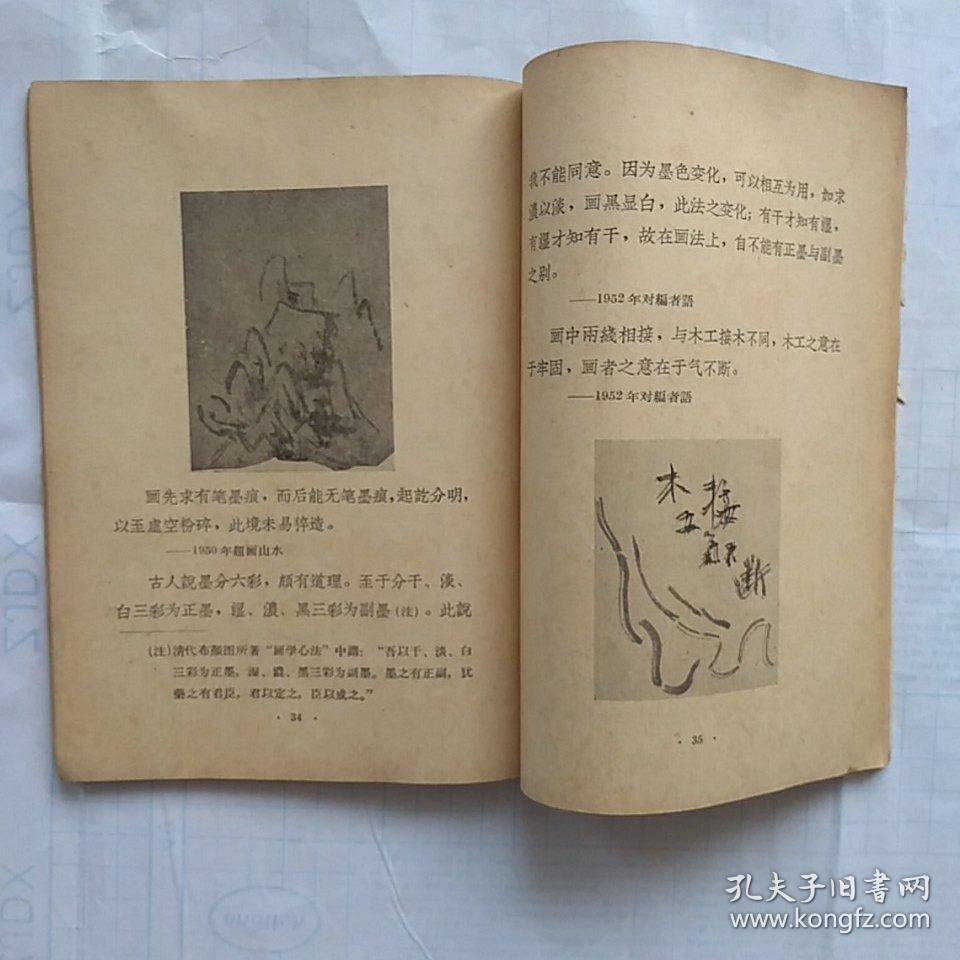 画先求有笔墨痕，而后能无笔墨痕，起訖分明，
以至虛空粉碎，此境未易猝造。
——1950年題画山水
古人說墨分六彩，頗有道理。至于分干、淡、
白三彩为正墨，濕、濃、黑三彩为副墨(注)。此說
(注)清代布顏图所著“画学心法”中謂：“吾以干、淡、白
三彩为正墨，濕、濃、黑三彩为副墨。墨之有正副，犹
藥之有君臣，君以定之，臣以成之。”
· 34 ·
我不能同意。因为墨色变化，可以相互为用，如求
濃以淡，画黑显白，此法之变化；有干才知有濕，
有濕才知有干，故在画法上，自不能有正墨与副墨
之别。
——1952年对編者語
画中兩綫相接，与木工接木不同，木工之意在
于牢固，画者之意在于气不断。
——1952年对編者語
木工
接
氣不
斷
· 35 ·
孔夫子旧書网
www.kongfz.com
XQTS